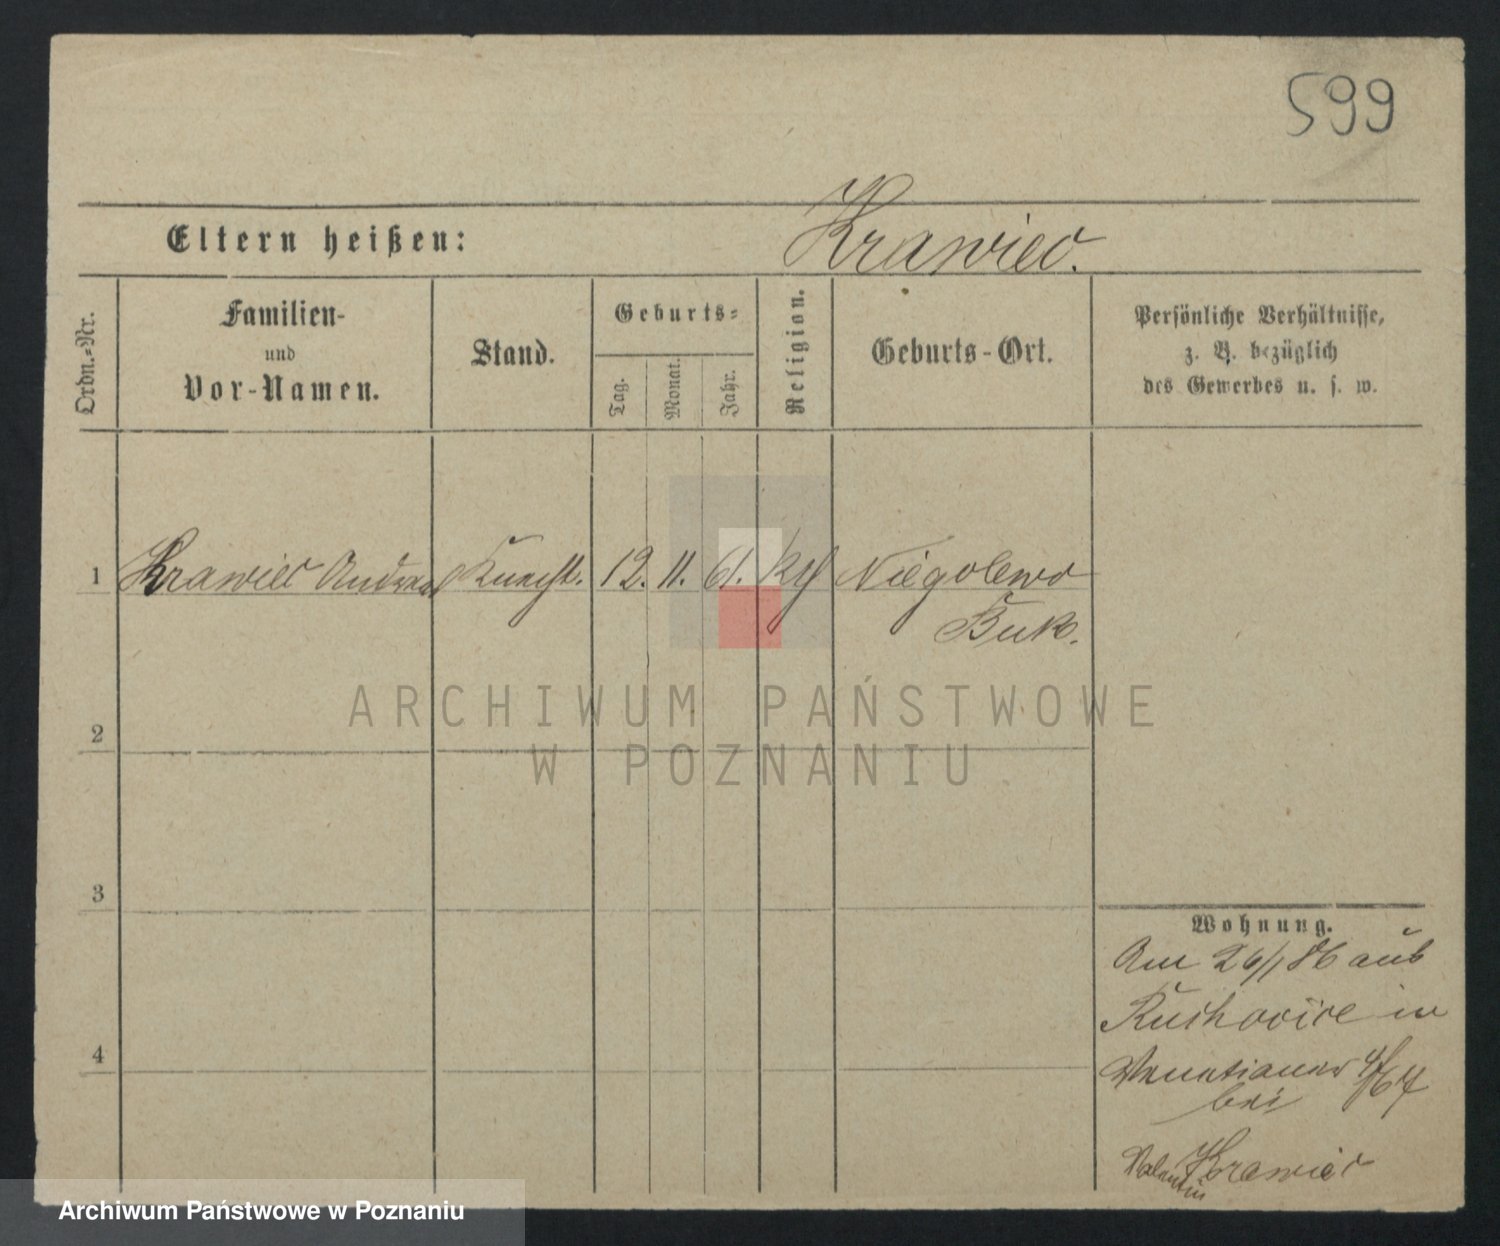 599
Eltern heißen: Krawiec.
Ordn.-Nr.
Familien-
und
Vor-Namen.
Stand.
Geburts-
Tag.
Monat.
Jahr.
Religion.
Geburts-Ort.
Persönliche Verhältnisse,
z. B. bezüglich
des Gewerbes u. s. w.
1 Krawiec Andreas Knecht. 12. 11. 61. kth Niegolewo
Buk.
2
3
4
Wohnung.
Am 26/1 86 aus
in
Venetianer
bei
Valentin Krawiec
ARCHIWUM PAŃSTWOWE
W POZNANIU
Archiwum Państwowe w Poznaniu